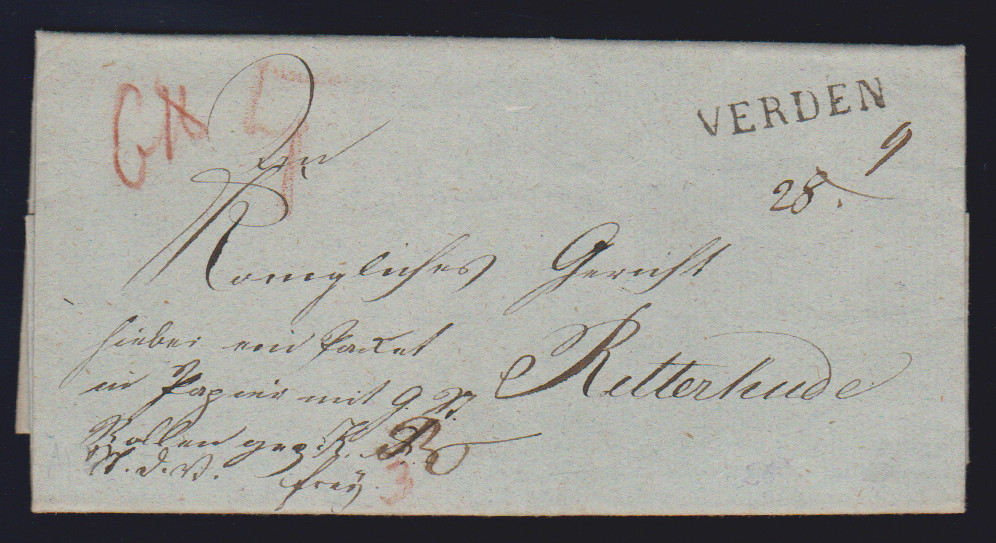 VERDEN
9
28.
An
Königliches Gericht
Ritterhude
hiebei ein Packet
in Papier mit 9
Rollen gez.
N. d. V.
frey
3